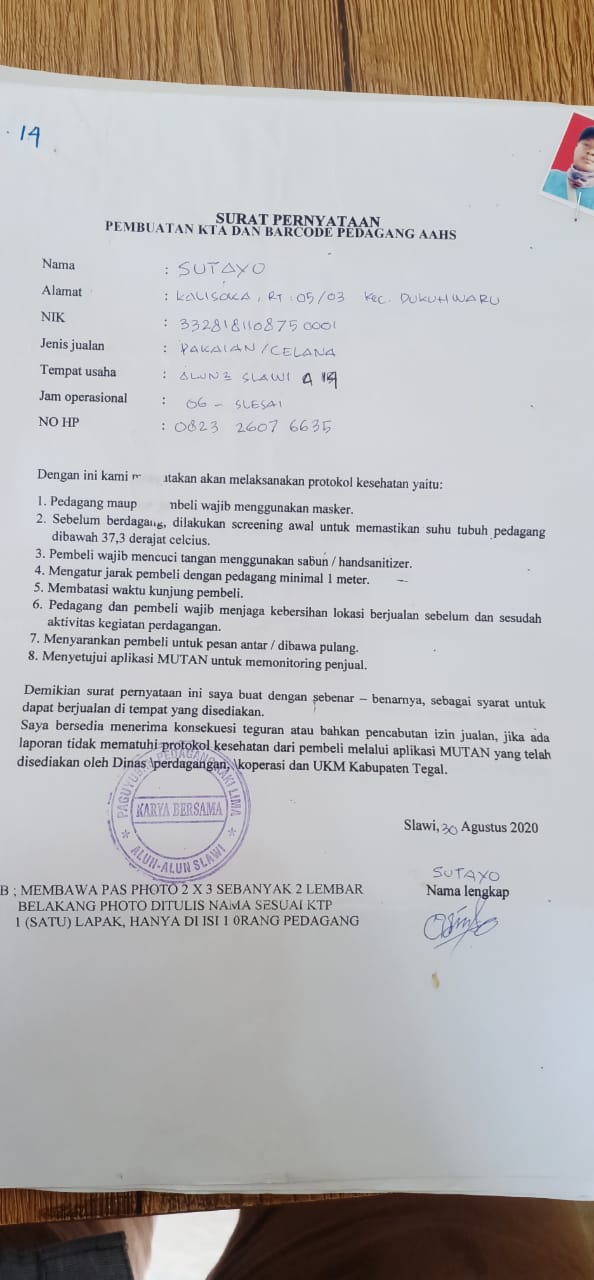 . 14
SURAT PERNYATAAN
PEMBUATAN KTA DAN BARCODE PEDAGANG AAHS
Nama : SUTAYO
Alamat : KALISOKA, RT : 05/03 KEC. DUKUHWARU
NIK : 3328181108750001
Jenis jualan : PAKAIAN/CELANA
Tempat usaha : ALUN2 SLAWI A 14
Jam operasional : 06 - SLESAI
NO HP : 0823 2607 6635
Dengan ini kami m atakan akan melaksanakan protokol kesehatan yaitu:
1. Pedagang maup mbeli wajib menggunakan masker.
2. Sebelum berdagang, dilakukan screening awal untuk memastikan suhu tubuh pedagang
dibawah 37,3 derajat celcius.
3. Pembeli wajib mencuci tangan menggunakan sabun / handsanitizer.
4. Mengatur jarak pembeli dengan pedagang minimal 1 meter.
5. Membatasi waktu kunjung pembeli.
6. Pedagang dan pembeli wajib menjaga kebersihan lokasi berjualan sebelum dan sesudah
aktivitas kegiatan perdagangan.
7. Menyarankan pembeli untuk pesan antar / dibawa pulang.
8. Menyetujui aplikasi MUTAN untuk memonitoring penjual.
Demikian surat pernyataan ini saya buat dengan sebenar – benarnya, sebagai syarat untuk
dapat berjualan di tempat yang disediakan.
Saya bersedia menerima konsekuesi teguran atau bahkan pencabutan izin jualan, jika ada
laporan tidak mematuhi protokol kesehatan dari pembeli melalui aplikasi MUTAN yang telah
disediakan oleh Dinas \perdagangan, \koperasi dan UKM Kabupaten Tegal.
PAGUYUBAN PEDAGANG KAKI LIMA
KARYA BERSAMA
* ALUN-ALUN SLAWI *
Slawi, 30 Agustus 2020
SUTAYO
Nama lengkap
B ; MEMBAWA PAS PHOTO 2 X 3 SEBANYAK 2 LEMBAR
BELAKANG PHOTO DITULIS NAMA SESUAI KTP
1 (SATU) LAPAK, HANYA DI ISI 1 0RANG PEDAGANG